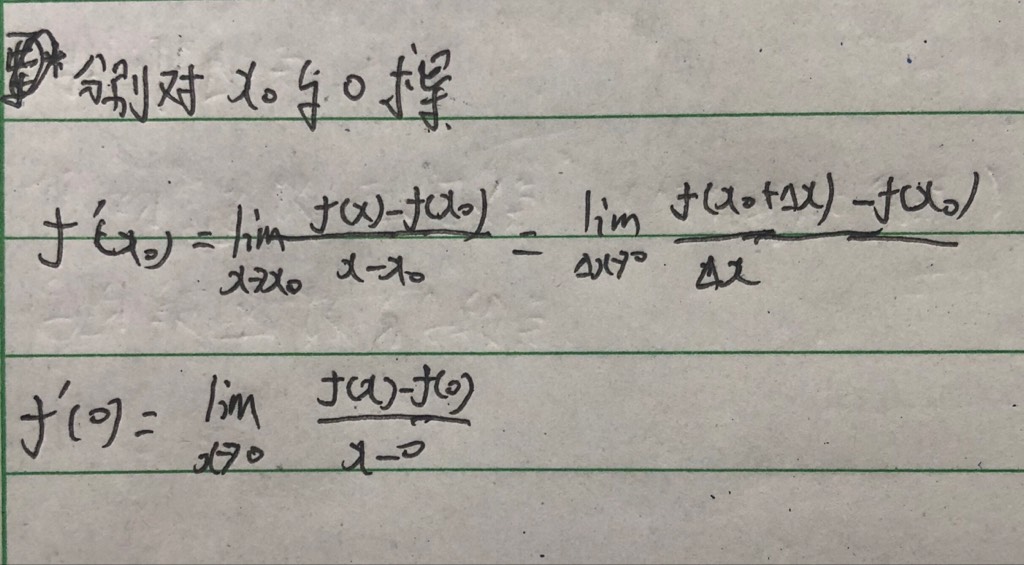 * 分别对 x₀ 与 0 求导
f'(x₀) = lim x→x₀ (f(x)-f(x₀))/(x-x₀) = lim Δx→0 (f(x₀+Δx)-f(x₀))/Δx
f'(0) = lim x→0 (f(x)-f(0))/(x-0)